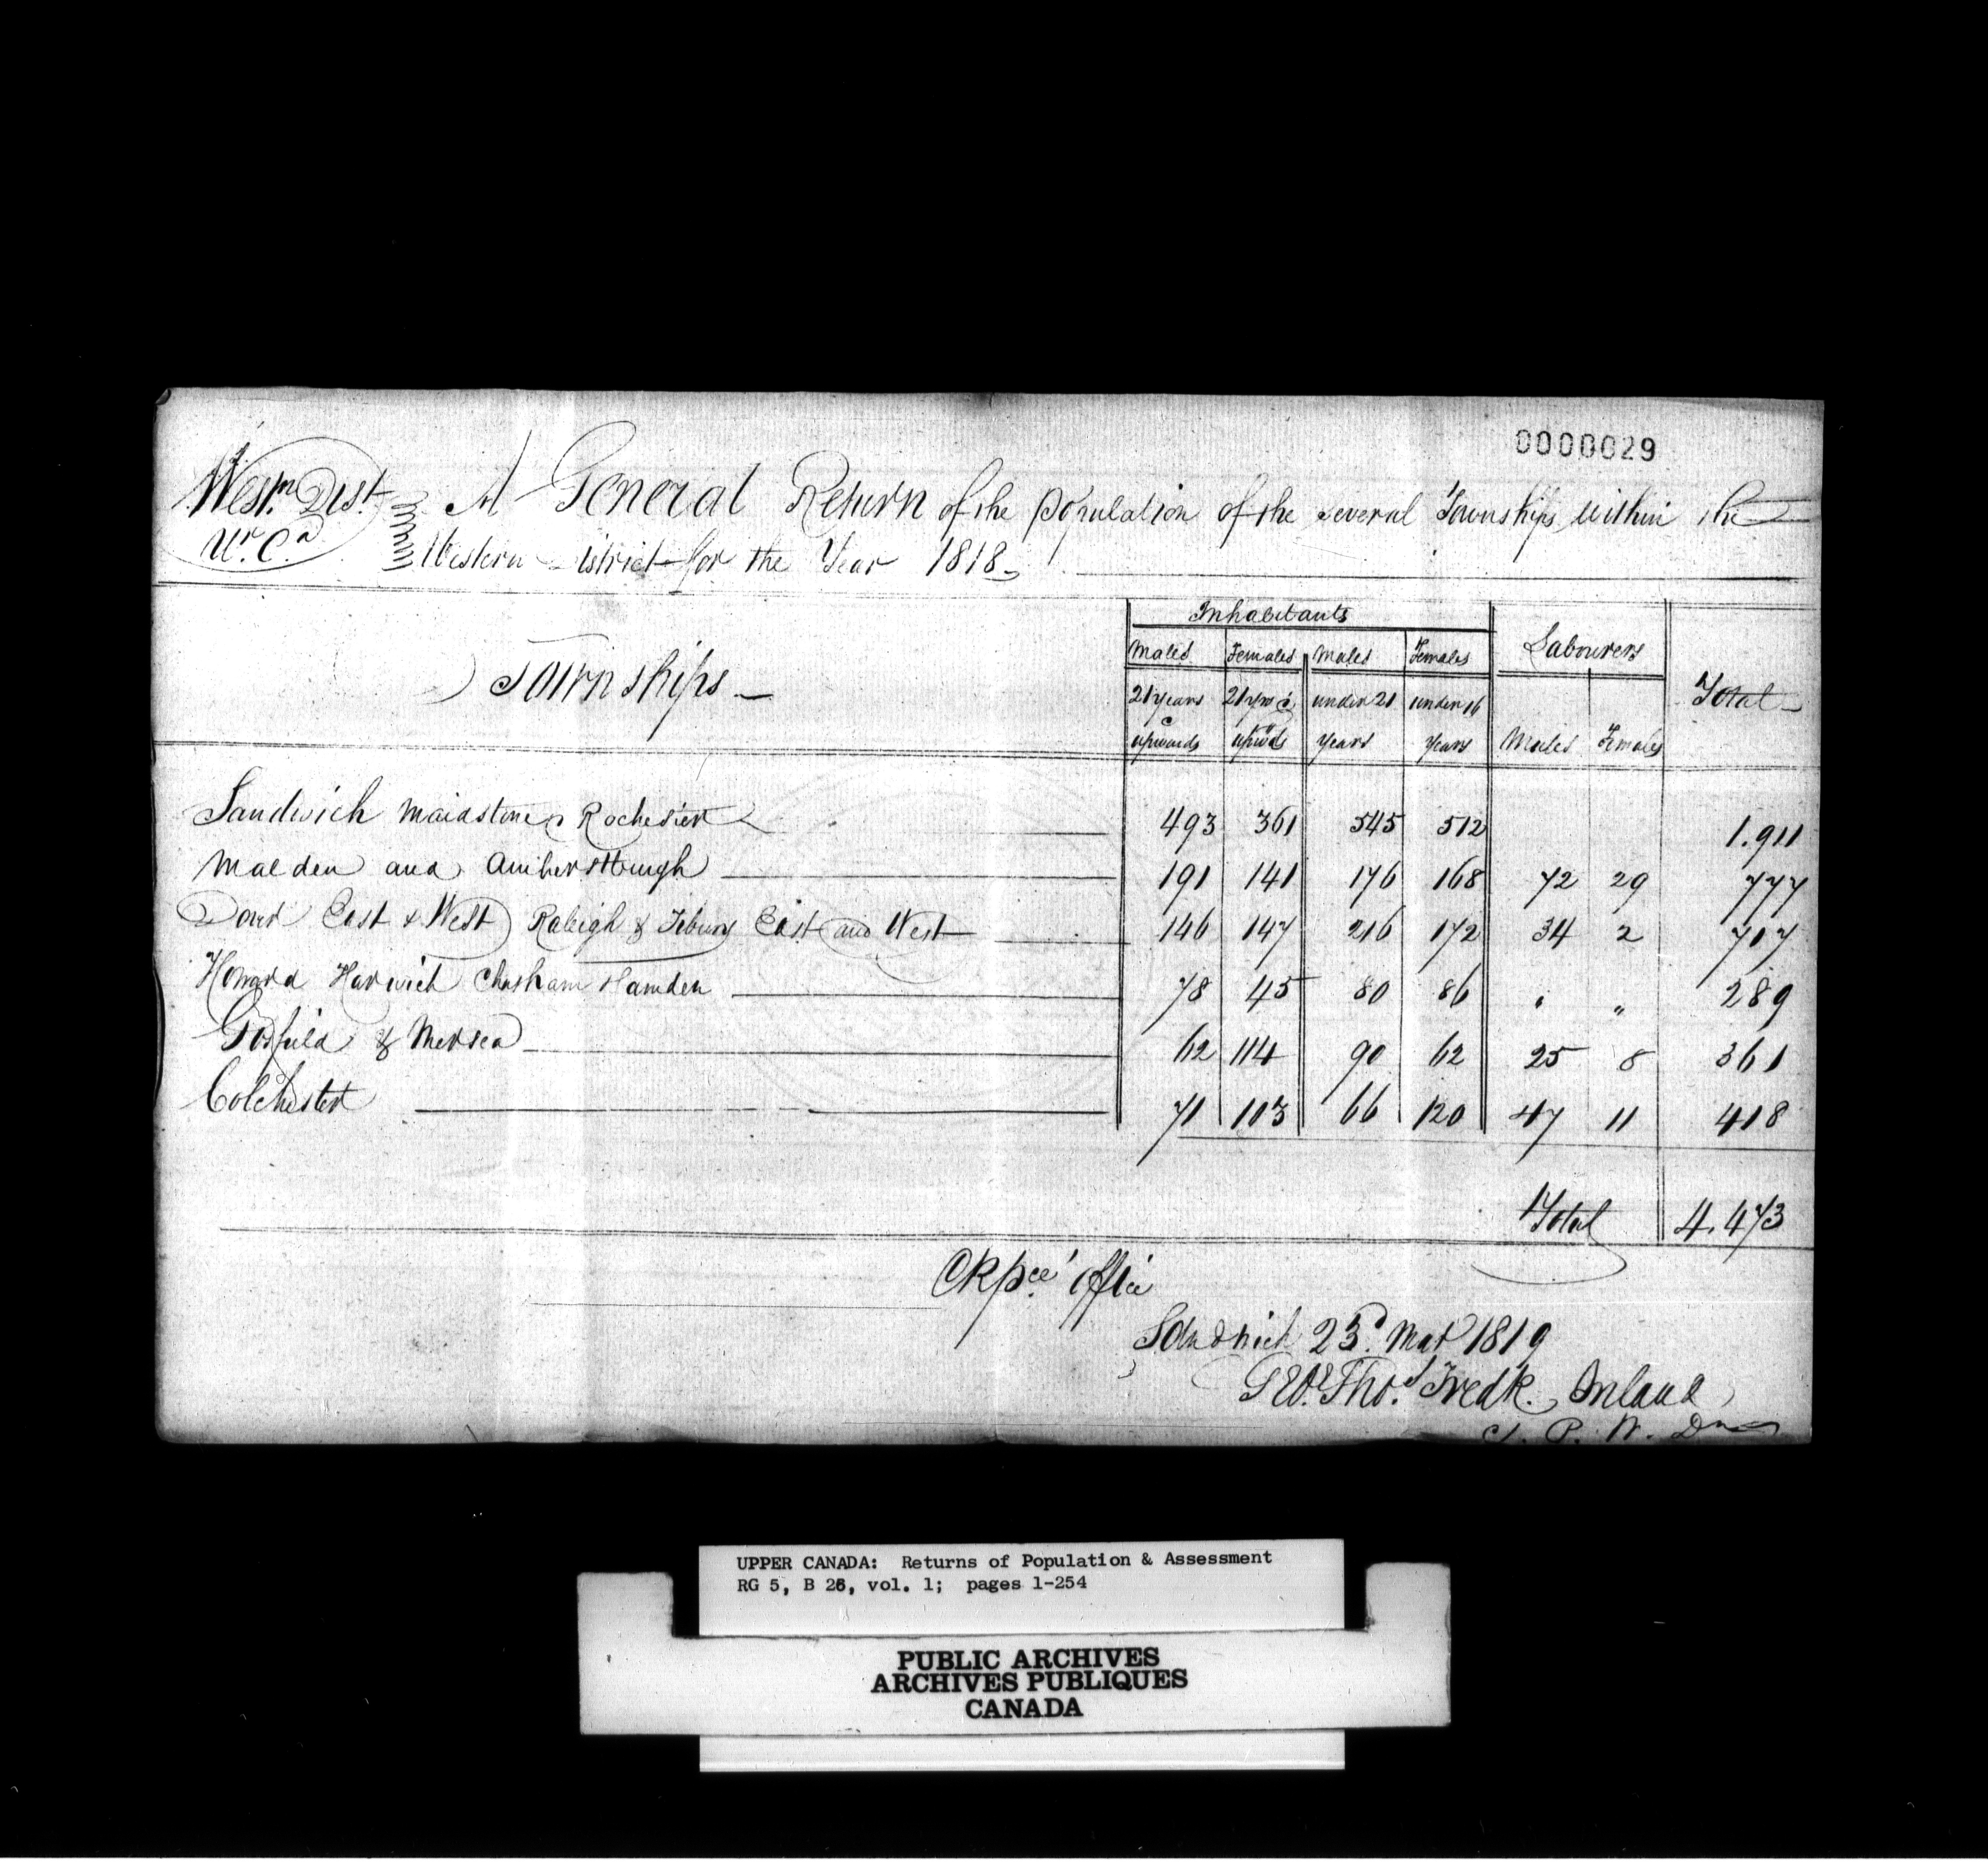 0000029
Westn. Dist. A General Return of the Population of the several Townships within the
Ur. Ca Western District for the Year 1818
Inhabitants
Townships Males Females Males Females Labourers Total
21 years & upwards 21 yrs & upwds under 21 years under 16 years Males Females
Sandwich Maidstone & Rochester 493 361 545 512 1.911
Malden and Amherstburgh 191 141 176 168 72 29 777
Dover East & West Raleigh & Tilbury East and West 146 147 216 172 34 2 717
Howard Harwich Chatham Hamden 78 45 80 86 " " 289
Gosfield & Mersea 62 114 90 62 25 8 361
Colchester 71 103 66 120 47 11 418
Total 4.473
Office
Sandwich 23d. Mar 1819
Geo. Thos. Fredk. Ireland
C. P. W. D
UPPER CANADA: Returns of Population & Assessment
RG 5, B 26, vol. 1; pages 1-254
PUBLIC ARCHIVES
ARCHIVES PUBLIQUES
CANADA